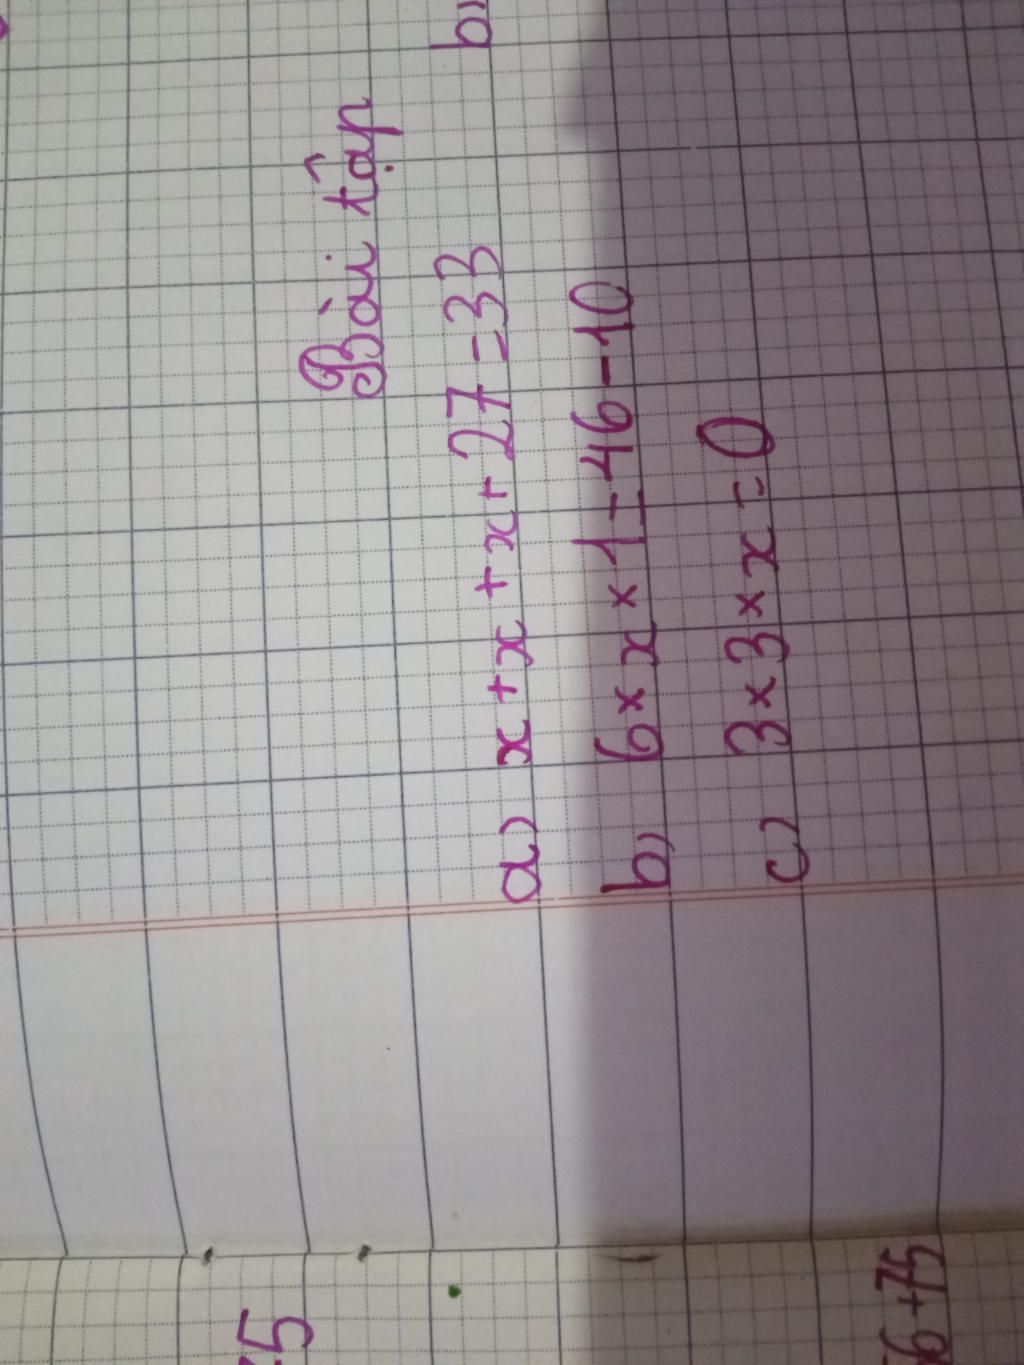 Bài tập
a) x + x + x + 27 = 33
b) 6 × x × 1 = 46 - 10
c) 3 × 3 × x = 0
b)
6 + 75